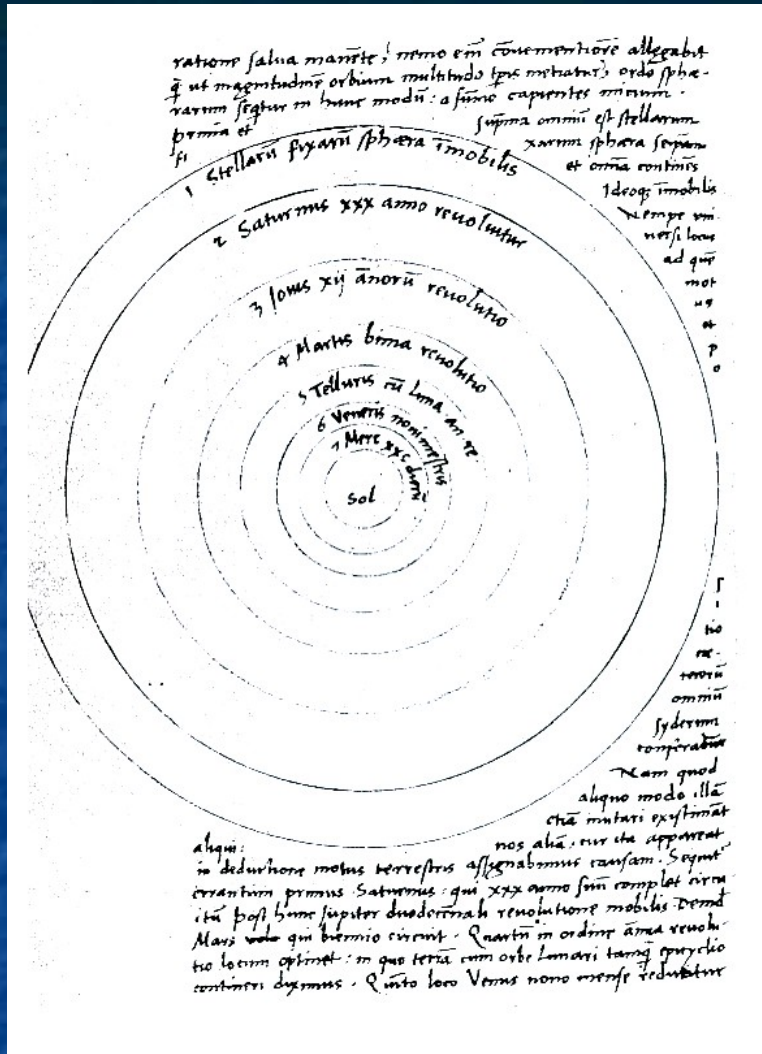 ratione salva manēte, nemo em̄ cōvenientiorē allegabit
q̄ ut magnitudinē orbium multitudo tp̄is metiatur, ordo sphæ-
rarum seq̄tur in hunc modū: a sūmo capientes inicium.
prima et sup̄ma omniū est stellarum
fi xarum sphæra seipsam
et omīa continēs
Ideoqȝ īmobilis
Nempe uni
versi locus
ad quē
mot
us
et
p
o
1 Stellarū fixarū sphæra īmobilis
2 Saturnus xxx anno revolvitur
3 Jovis xij ānorū revolutio
4 Martis bima revolutio
5 Telluris cū luna an. re.
6 Veneris nonimestris
7 Merc xxc dierū
Sol
s
i
tio
cæ-
terorū
omniū
syderum
conferatur
Nam quod
aliquo modo illā
etiā mutari existimāt
aliqui: nos aliā, cur ita appareat
in deductione motus terrestris assignabimus causam. Sequit᷑
errantium primus Saturnus: qui xxx anno suū complet circu
itū post hunc Jupiter duodecennali revolutione mobilis Demd̄
Mars qui biennio circuit. Quartū in ordine ānua revolu-
tio locum optinet: in quo terrā cum orbe lunari tamq̄ epicyclio
contineri diximus. Quīto loco Venus nono mense reducitur